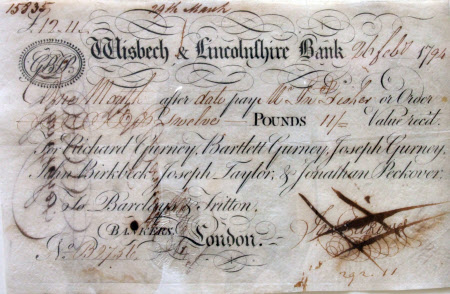 15535. 29th March
£12.11
Wisbech & Lincolnshire Bank 26 Feb 1794
GBP
One Month after date pay Mr or Order
Twelve Pounds 11/- Value recd.
For Richard Gurney, Bartlett Gurney, Joseph Gurney,
John Birkbeck, Joseph Taylor, & Jonathan Peckover.
To Barclays & Tritton.
Bankers London.
No.